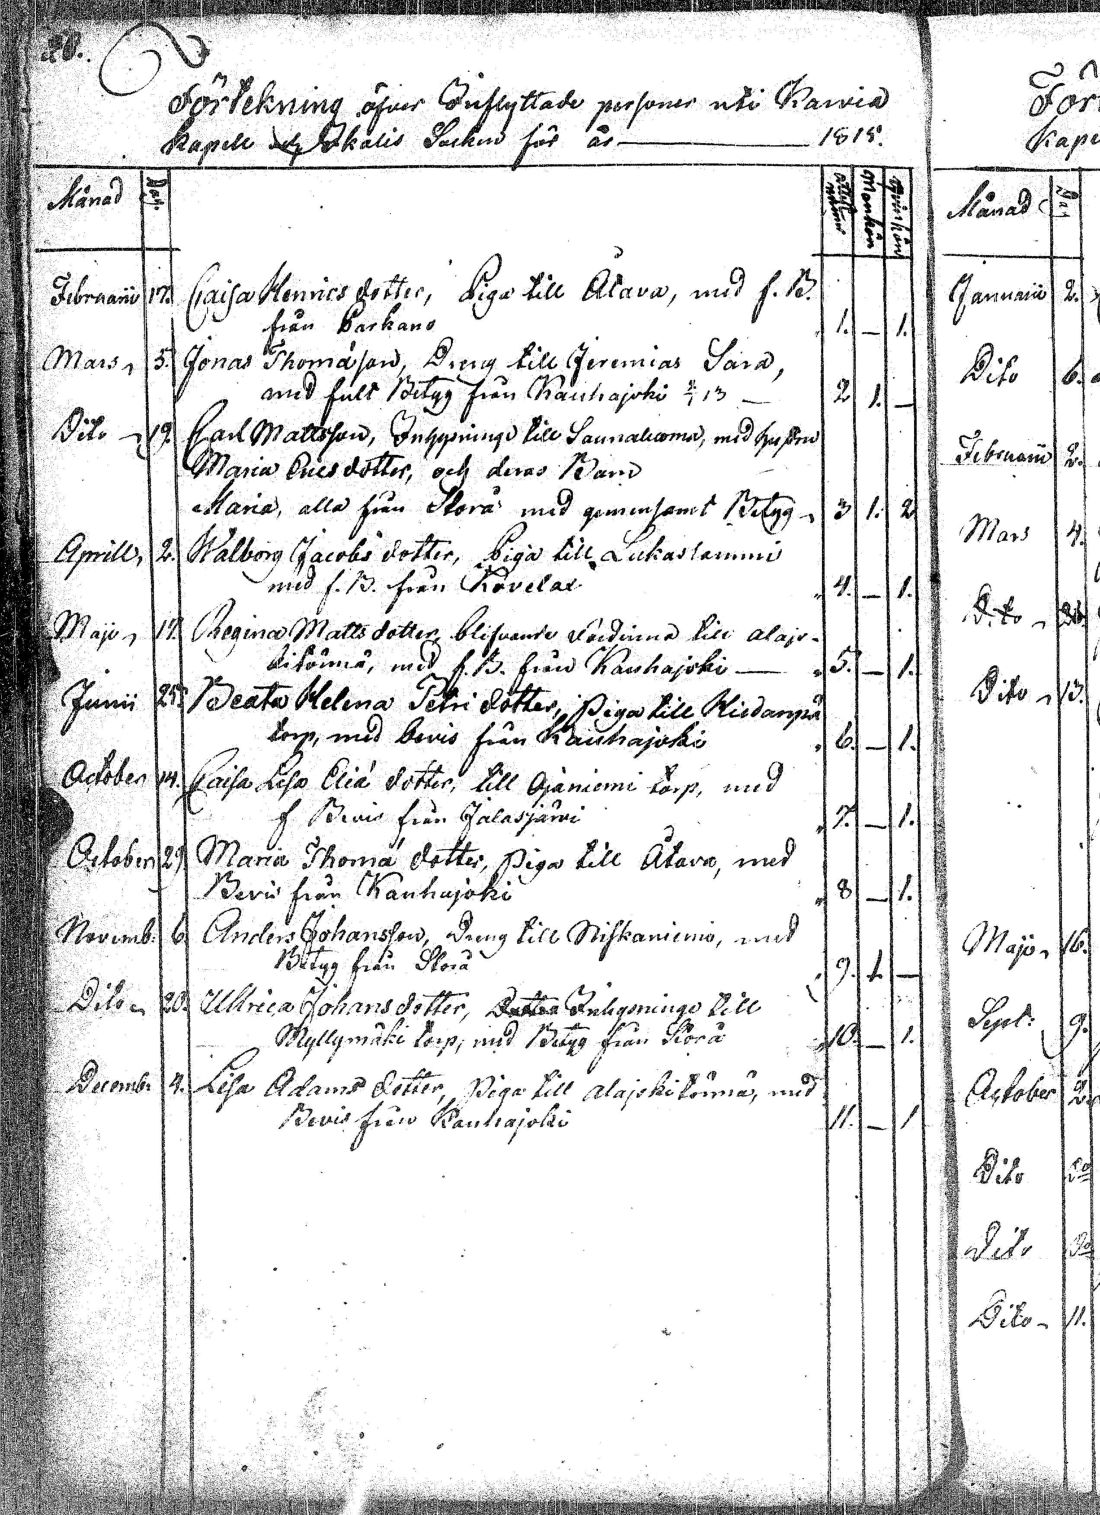 20.
Förtekning öfver Inflyttade personer uti Karvia
Kapell af Ikalis Socken för år 1815.
Månad Dat. Attestens nummer Mankön Qvinkön
Februarii 17. Caisa Henrics dotter, Piga till Ätava, med f. B.
från Parkano 1. — 1.
Mars 5. Jonas Thomæson, Dreng till Jeremias Sara,
med fult Betyg från Kauhajoki 13 — 2 1. —
Dito 19. Carl Mattsson, Inhysninge till Saunaluoma, med hustru
Maria Erics dotter, och deras Barn
Maria, alla från Storå med gemensamt Betyg 3 1. 2
Aprill, 2. Walborg Jacobs dotter, Piga till Lukaslammi
med f. B. från Kovelax 4. — 1.
Majo 17. Regina Matts dotter, blifvande Värdinna till Alajo-
kitörmä, med f. B. från Kauhajoki — 5. — 1.
Junii 25. Beata Helena Petri dotter, Piga till
torp, med bevis från Kauhajoki 6. — 1.
October 14. Caisa Lisa Eliæ dotter, till Ojaniemi torp, med
f Bevis från Jalasjärvi 7. — 1.
October 29 Maria Thomæ dotter, Piga till Ätava, med
Bevis från Kauhajoki 8 — 1.
Novemb: 6 Anders Johansson, Dreng till Niskaniemi, med
Betyg från Storå 9. 1. —
Dito 20. Ullrica Johans dotter, Inhysninge till
Myllymäki torp, med Betyg från Storå 10. — 1.
Decemb: 4. Lisa Adams dotter, Piga till Alajokitörmä, med
Bevis från Kauhajoki 11. — 1
För
Kape
Månad Dat
Januarii 2.
Dito 6.
Februarii 2.
Mars 4.
Dito
Dito 13.
Majo 16.
Sept: 9.
October 2.
Dito do
Dito do
Dito 11.